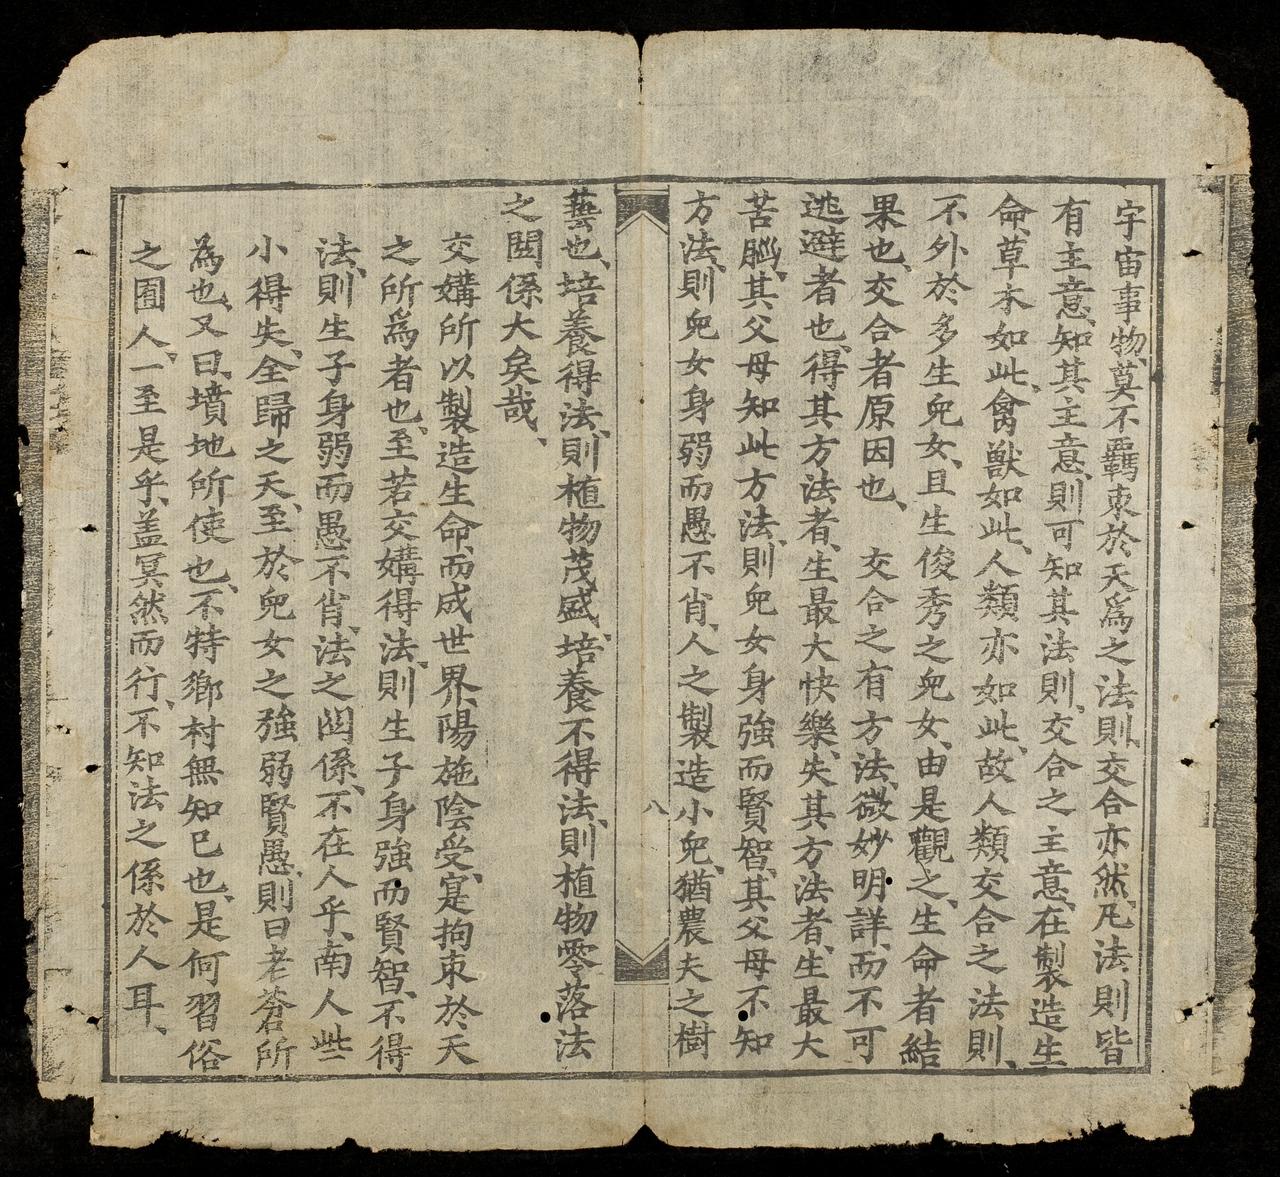 宇宙事物、莫不羈束於天爲之法則、交合亦然、凡法則皆
有主意、知其主意、則可知其法則、交合之主意、在製造生
命、草木如此、禽獸如此、人類亦如此、故人類交合之法則、
不外於多生兒女、且生俊秀之兒女、由是觀之、生命者結
果也、交合者原因也、　交合之有方法、微妙明詳、而不可
逃避者也、得其方法者、生最大快樂、失其方法者、生最大
苦腦、其父母知此方法、則兒女身強而賢智、其父母不知
方法、則兒女身弱而愚不肖、人之製造小兒、猶農夫之樹
八
藝也、培養得法、則植物茂盛、培養不得法、則植物零落、法
之関係大矣哉、
交媾所以製造生命、而成世界、陽施陰受、寔拘束於天
之所爲者也、至若交媾得法、則生子身強而賢智、不得
法、則生子身弱而愚不肖、法之関係、不在人乎、南人些
小得失、全歸之天、至於兒女之強弱賢愚、則曰老蒼所
爲也、又曰、墳地所使也、不特鄉村無知已也、是何習俗
之囿人、一至是乎、盖冥然而行、不知法之係於人耳、